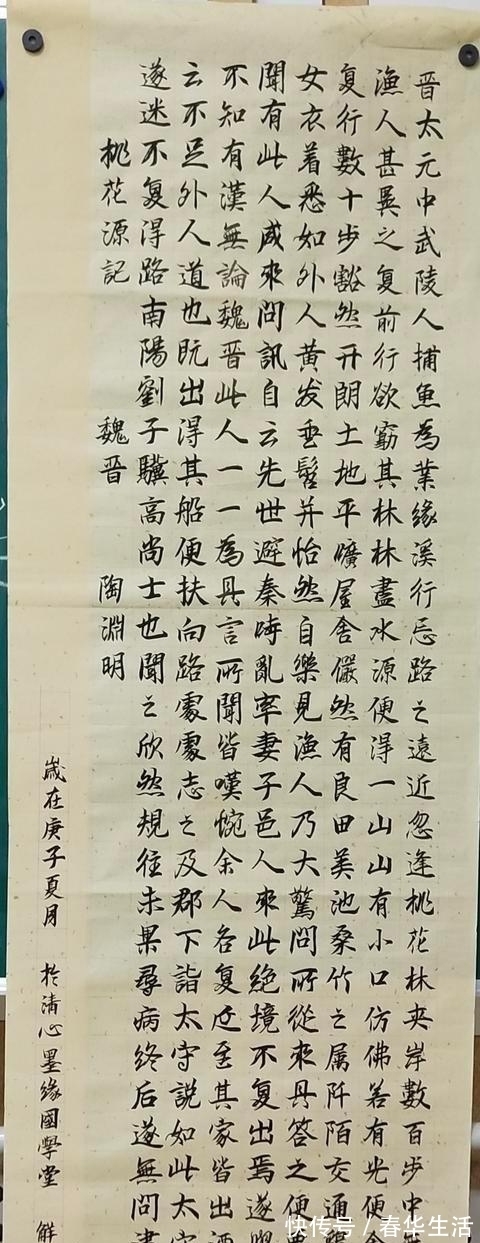 晋太元中武陵人捕魚為業緣溪行忘路之遠近忽逢桃花林夾岸數百步中
漁人甚異之复前行欲窮其林林盡水源便得一山山有小口仿佛若有光便舍
复行數十步豁然开朗土地平曠屋舍儼然有良田美池桑竹之属阡陌交通
女衣着悉如外人黄发垂髫并怡然自樂見漁人乃大驚問所從來具答之便要
聞有此人咸來問訊自云先世避秦時亂率妻子邑人來此绝境不复出焉遂與
不知有漢無論魏晋此人一一為具言所聞皆嘆惋余人各复延至其家皆出酒
云不足外人道也既出得其船便扶向路處處志之及郡下詣太守説如此太守
遂迷不复得路南陽劉子驥高尚士也聞之欣然規往未果尋病終后遂無問津
桃花源記 魏晋 陶淵明
歲在庚子夏月 於清心墨緣國學堂 解
快传号 / 春华生活